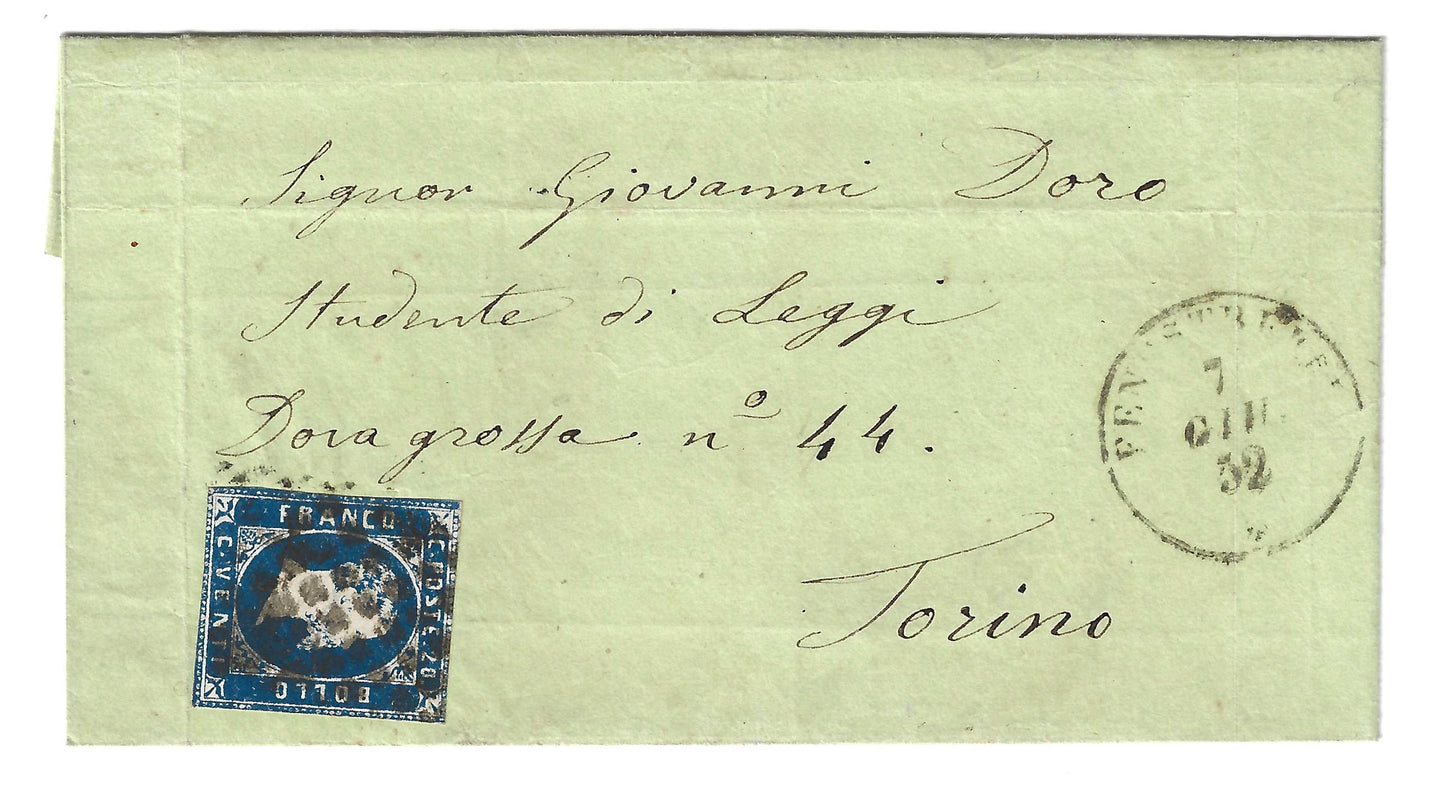 Signor Giovanni Doro
Studente di Leggi
Dora grossa nº 44.
Torino
FENESTRELLE
7
GIU.
52
FRANCO
C. POSTE. 20.
BOLLO
C. VENTI